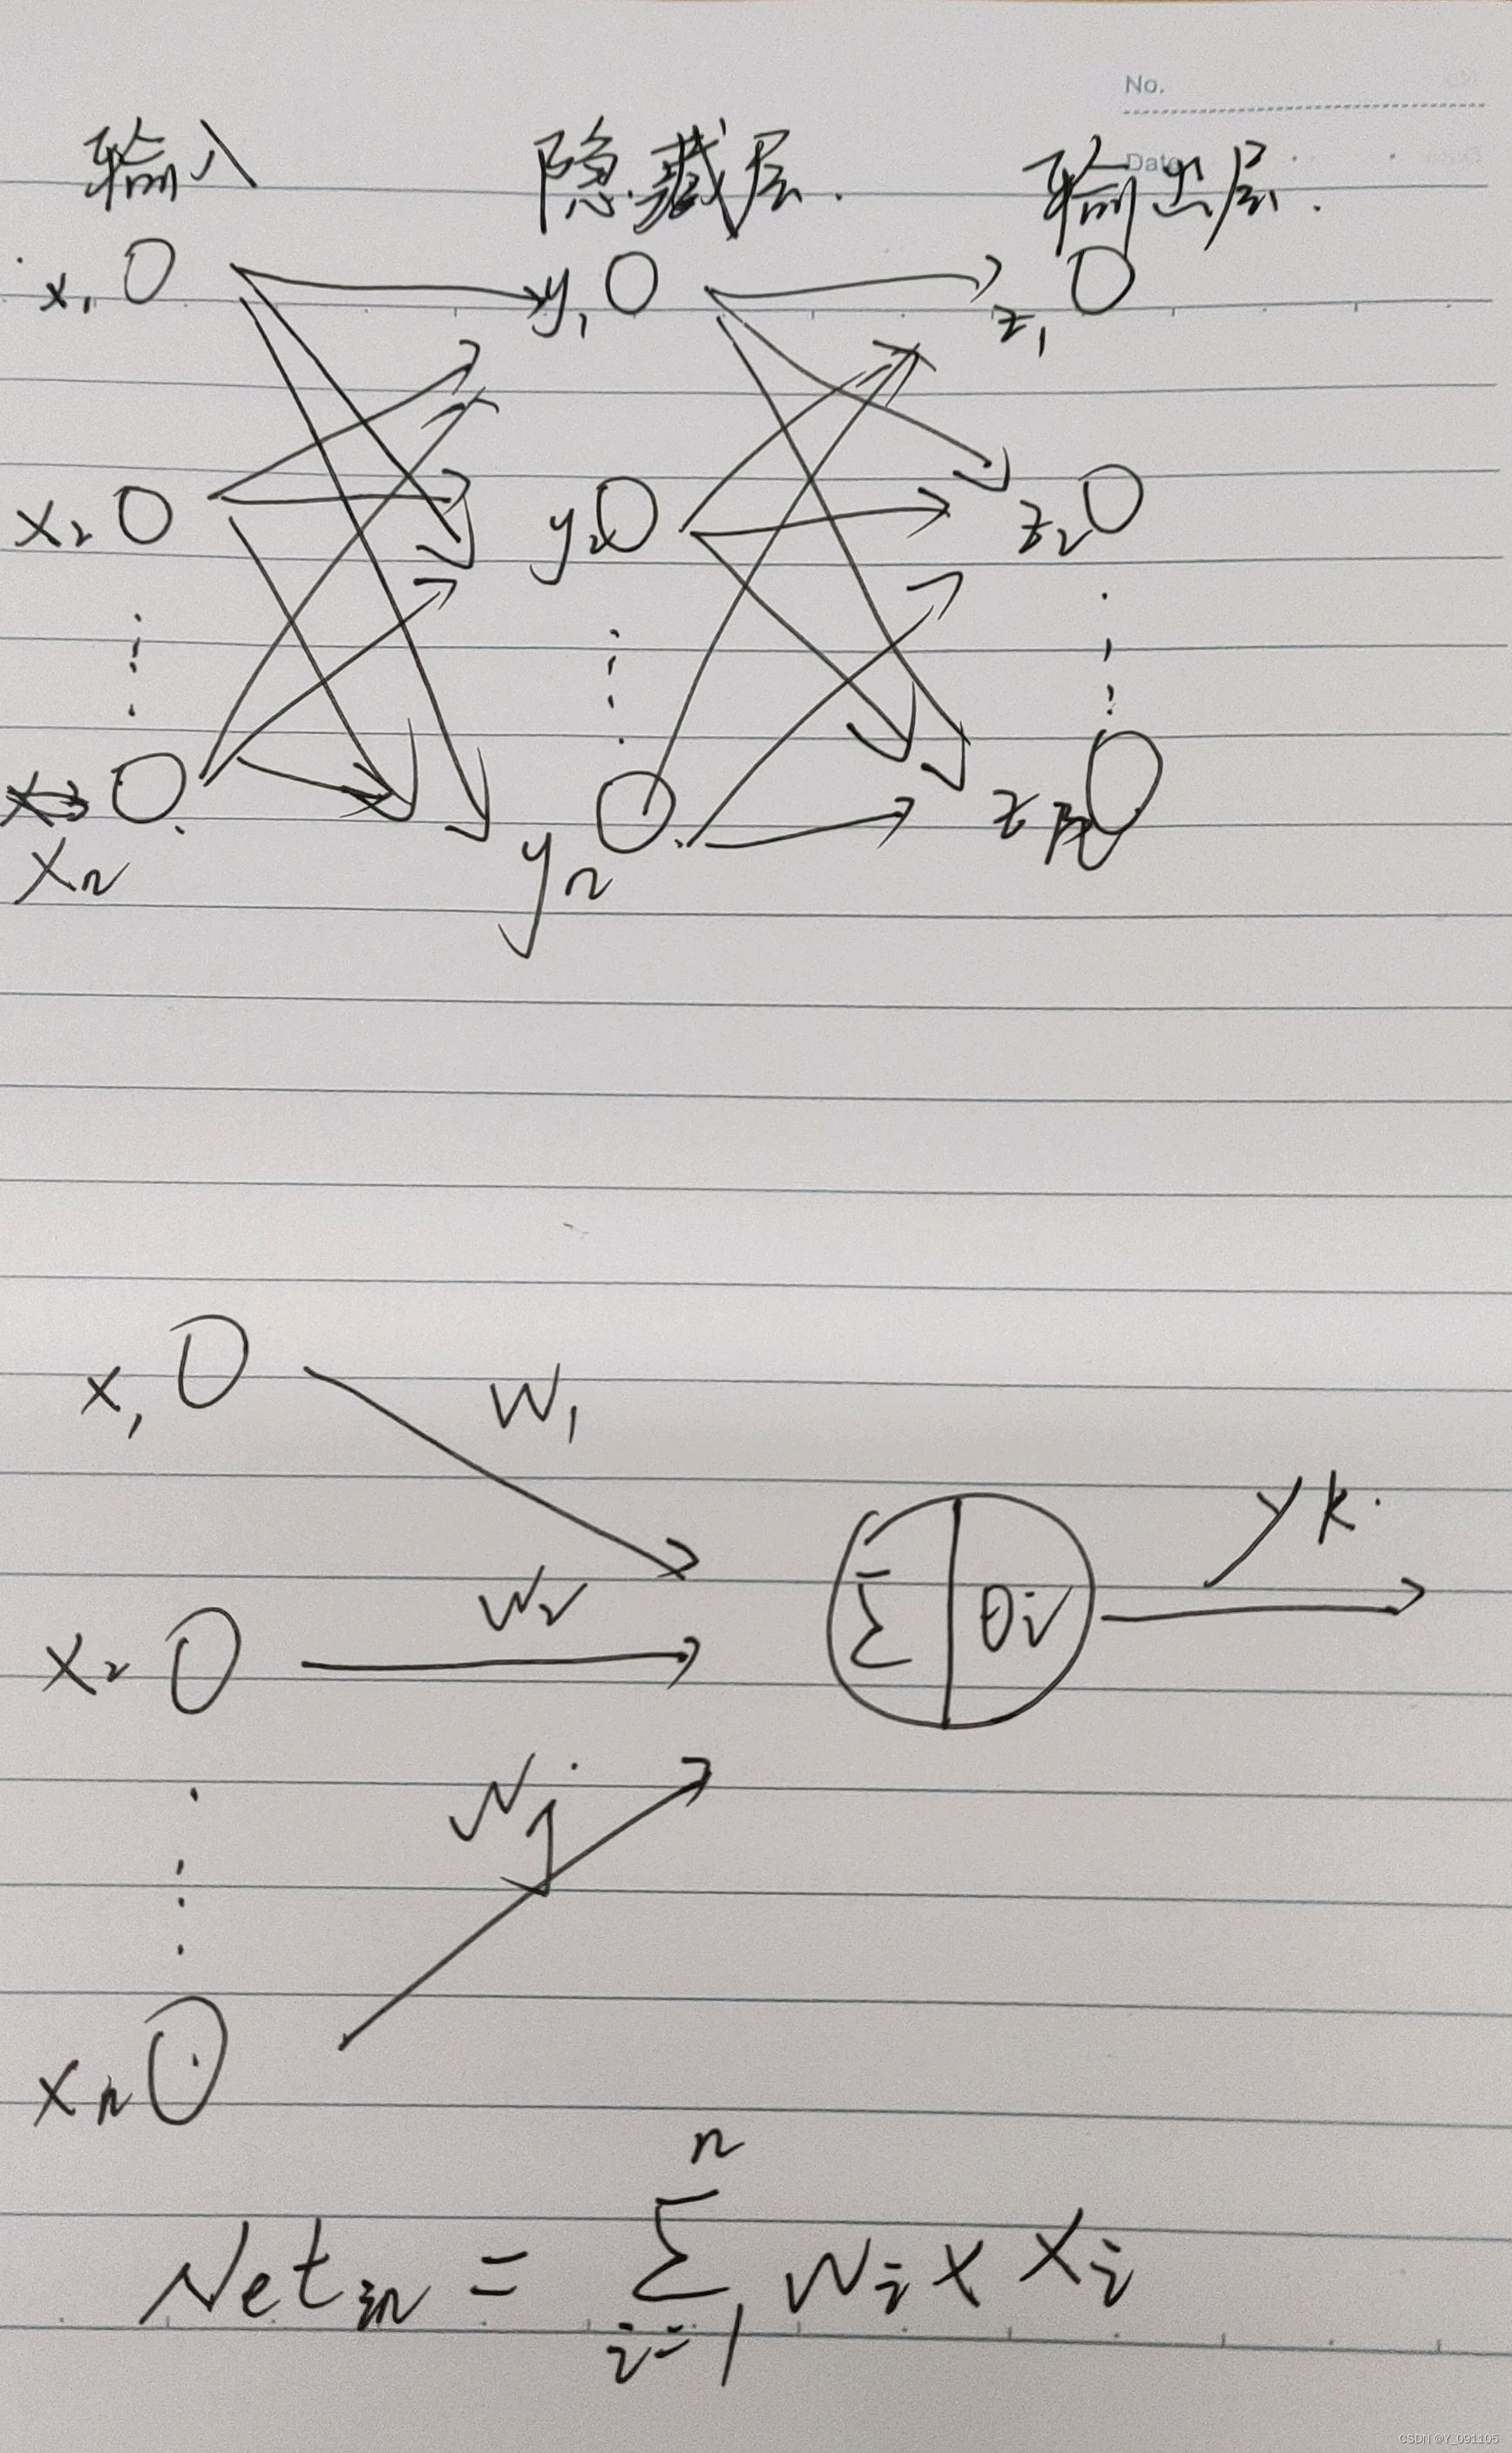 No.
Date
输入 隐藏层. 输出层.
x1 y1 z1
x2 y2 z2
x3
xn yn zn
x1 w1
yk
x2 w2 Σ θi
wj
xn
n
Netin = Σ wi × xi
i=1
CSDN @Y_091105